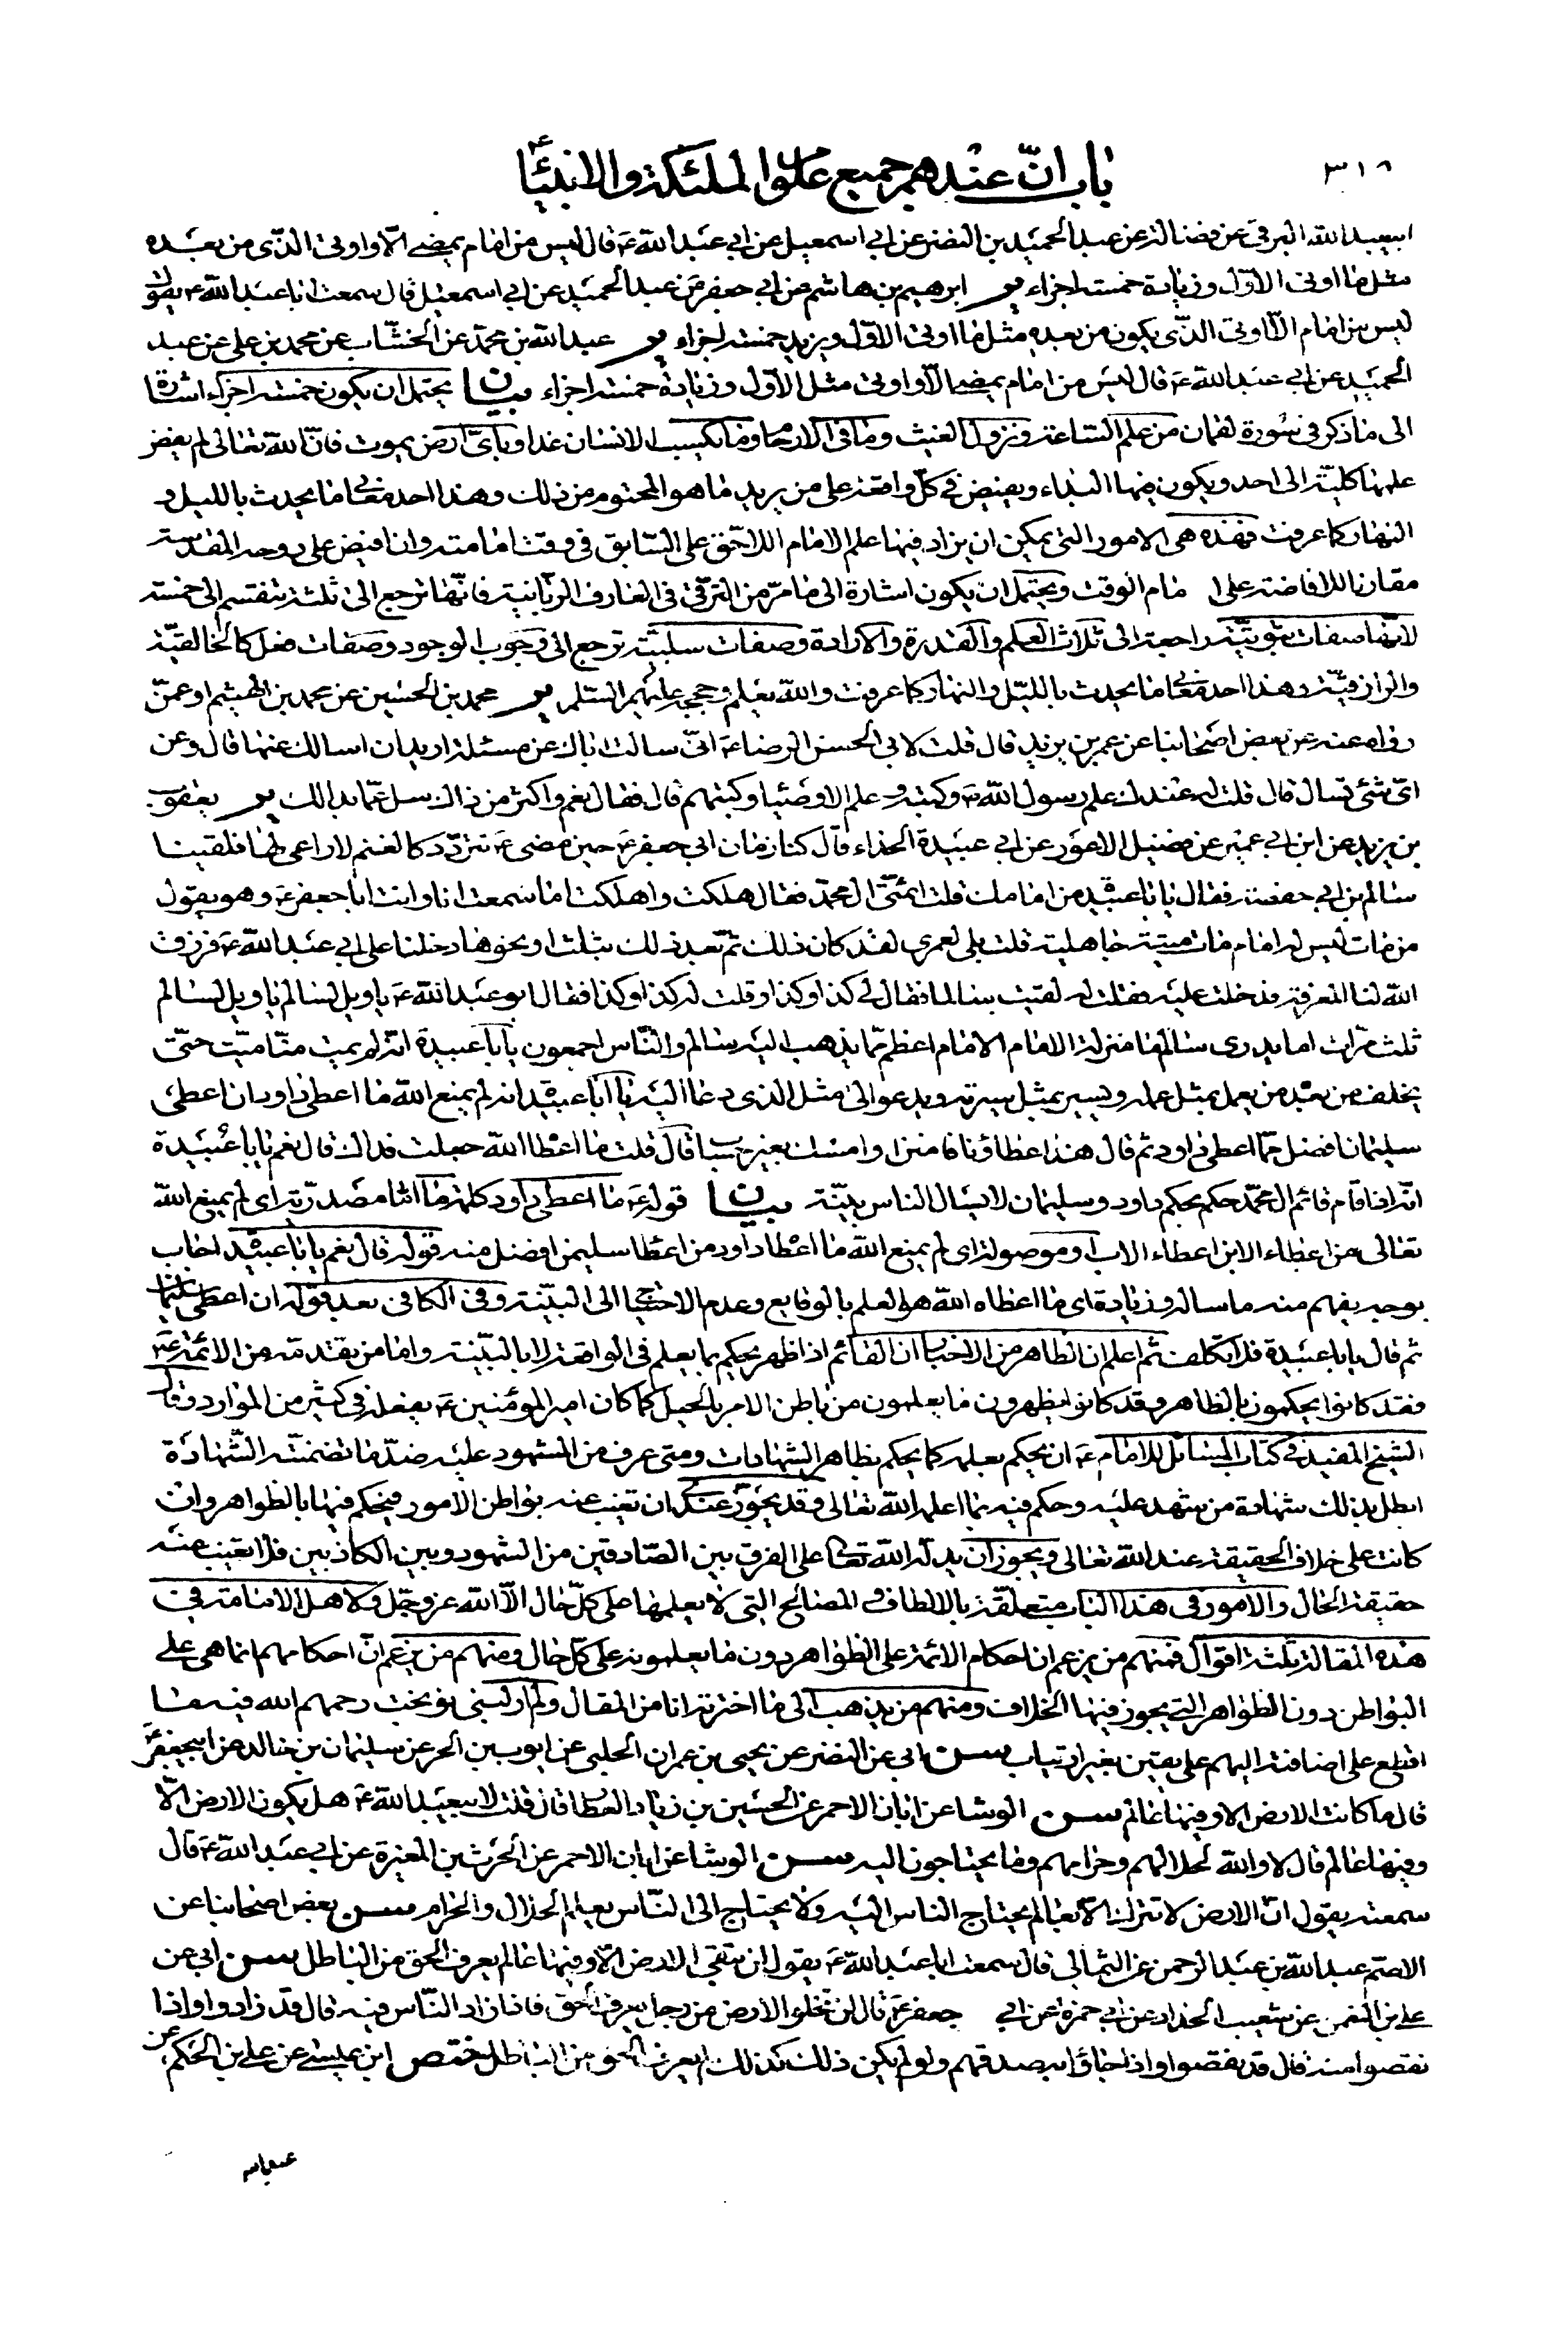 ٣١٦
باب انّ عندهم جميع علوم الملئكة والانبياء
ابيعبد الله البرقى عن فضالة عن عبد الحميد بن النضر عن ابى اسمعيل عن ابى عبد الله ع قال ليس من امام يمضى الّا واوتى الذى من بعده
مثل ما اوتى الاوّل وزيادة خمسة اجزاء ير ابرهيم بن هاشم عن ابى جعفر عن عبد الحميد عن ابى اسمعيل قال سمعت ابا عبد الله ع يقول
ليس من امام الّا اوتى الذى يكون من بعده مثل ما اوتى الاوّل ويزيد خمسة اجزاء ير عبد الله بن محمد عن الخشّاب عن محمد بن على عن عبد
الحميد عن ابى عبد الله ع قال ليس من امام يمضى الّا واوتى مثل الاوّل وزيادة خمسة اجزاء بيان يحتمل ان يكون خمسة اجزاء اشارة
الى ما ذكر فى سورة لقمان من علم الساعة ونزول الغيث وما فى الارحام وما تكسب الانسان غدا وباىّ ارض يموت فانّ الله تعالى لم يفض
علمها كليّة الى احد ويكون فيها البداء ويفيض فى كلّ واقعة على من يريد ما هو المحتوم من ذلك وهذا احد معانى ما يحدث بالليل و
النهار كما عرفت فهذه هى الامور التى يمكن ان يزاد فيها علم الامام اللاحق على السّابق فى وقت امامته وان افيض على روحه المقدسة
مقارنا للافاضة على امام الوقت ويحتمل ان يكون اشارة الى ما مرّ من الترقى فى المعارف الربّانية فانّها ترجع الى ثلثة تنقسم الى خمسة
لانّها صفات ثبوتيّة راجعة الى ثلاث العلم والقدرة والارادة وصفات سلبيّة ترجع الى وجوب الوجود وصفات فعل كالخالقيّة
والرازقيّة وهذا احد معانى ما يحدث بالليل والنهار كما عرفت والله يعلم وحججه عليهم السلم ير محمد بن الحسين عن محمد بن الهيثم او عمّن
رواه عنه عن بعض اصحابنا عن عمر بن يزيد قال قلت لابى الحسن الرضا ع انّى سالت اباك عن مسئلة اريد ان اسالك عنها قال وعن
اىّ شئ تسال قال قلت له عندك علم رسول الله ص وكتبه وعلم الاوصياء وكتبهم قال فقال نعم واكثر من ذاك سل عمّا بدا لك ير يعقوب
بن يزيد عن ابن ابى عمير عن فضيل الاعور عن ابى عبيدة الحذاء قال كنا زمان ابى جعفر ع حين مضى ع نتردّد كالغنم لا راعى لها فلقينا
سالم بن ابى حفصة فقال يابا عبيدة من امامك قلت ائمّتى ال محمّد فقال هلكت واهلكت اما سمعت انا وانت ابا جعفر ع وهو يقول
من مات ليس له امام مات ميتة جاهلية قلت بلى لعمرى لقد كان ذلك ثم بعد ذلك بثلث او نحوها دخلنا على ابى عبد الله ع فرزق
الله لنا المعرفة فدخلت عليه فقلت له لقيت سالما فقال لى كذا وكذا وقلت له كذا وكذا فقال ابو عبد الله ع يا ويل لسالم يا ويل لسالم
ثلث مرّات اما يدرى سالم ما منزلة الامام الامام اعظم ممّا يذهب اليه سالم والنّاس اجمعون يابا عبيدة انّه لم يمت منّا ميّت حتّى
يخلف من بعده من يعمل بمثل عمله ويسير بمثل سيرته ويدعو الى مثل الذى دعا اليه يا ابا عبيدة انه لم يمنع الله ما اعطى داود ان اعطى
سليمان افضل ممّا اعطى داود ثم قال هذا عطاؤنا فامنن او امسك بغير حساب قال قلت ما اعطاه الله جعلت فداك قال نعم يابا عبيدة
انّه اذا قام قائم ال محمّد حكم بحكم داود وسليمان لا يسال الناس بيّنة بيان قوله ع ما اعطى داود كلمة ما امّا مصدريّة اى لم يمنع الله
تعالى من اعطاء الابن اعطاء الاب او موصولة اى لم يمنع الله ما اعطاه داود من اعطاء سليمن افضل منه قوله قال نعم يابا عبيدة اجاب
بوجه يفهم منه ما ساله وزيادة اى ما اعطاه الله هو العلم بالوقايع وعدم الاحتياج الى البيّنة وفى الكافى بعد قوله ان اعطى سليمان
ثم قال يابا عبيدة فلا يتكلّف ثم اعلم ان الظاهر من الاخبار ان القائم اذا ظهر يحكم بما يعلم فى الواقعة لا بالبيّنة واما من تقدمه من الائمة ع
فقد كانوا يحكمون بالظاهر وقد كانوا يظهرون ما يعلمون من باطن الامر بالحيل كما كان امير المؤمنين ع يفعله فى كثير من الموارد وقال
الشيخ المفيد فى كتاب المسائل للامام ع ان يحكم بعلمه كما يحكم بظاهر الشهادات ومتى عرف من المشهود عليه ضدّ ما تضمنته الشهادة
ابطل بذلك شهادة من شهد عليه وحكم فيه بما اعلمه الله تعالى وقد يجوز عندى ان تغيب عنه بواطن الامور فيحكم فيها بالظواهر وان
كانت على خلاف الحقيقة عند الله تعالى ويجوز ان يدلّه الله تعالى على الفرق بين الصّادقين من الشهود وبين الكاذبين فلا تغيب عنه
حقيقة الحال والامور فى هذا الباب متعلّقة بالالطاف والمصالح التى لا يعلمها على كلّ حال الّا الله عزّ وجلّ ولاهل الامامة فى
هذه المقالة ثلثة اقوال فمنهم من يزعم ان احكام الائمة على الظواهر دون ما يعلمونه على كلّ حال ومنهم من يزعم انّ احكامهم انما هى على
البواطن دون الظواهر التى يجوز فيها الخلاف ومنهم من يذهب الى ما اخترته انا من المقال ولم ار لبنى نوبخت رحمهم الله فيه ما
اقطع على اضافته اليهم على يقين بغير ارتياب سن ابى عن النضر عن يحيى بن عمران الحلبى عن ايوب بن الحر عن سليمان بن خالد عن ابيجعفر ع
قال ما كانت الارض الا وفيها عالم سن الوشا عن ابان الاحمر عن الحسين بن زياد العطار قال قلت لابيعبد الله ع هل يكون الارض الّا
وفيها عالم قال لا والله لحلالهم وحرامهم وما يحتاجون اليه سن الوشا عن ابان الاحمر عن الحرث بن المغيرة عن ابى عبد الله ع قال
سمعته يقول انّ الارض لا تترك الّا بعالم يحتاج الناس اليه ولا يحتاج الى النّاس يعلم الحلال والحرام سن بعض اصحابنا عن
الاصمّ عبد الله بن عبد الرحمن عن الثمالى قال سمعت ابا عبد الله ع يقول لن تبقى الارض الّا وفيها عالم يعرف الحق من الباطل سن ابى عن
على بن النعمن عن شعيب الحداد عن ابى حمزة عن ابى جعفر ع قال لن تخلو الارض من رجل يعرف الحق فاذا زاد النّاس فيه قال قد زادوا واذا
نقصوا منه قال قد نقصوا واذا جاؤا به صدقهم ولو لم يكن ذلك كذلك لم يعرف الحق من الباطل ختص ابن عيسى عن على بن الحكم عن